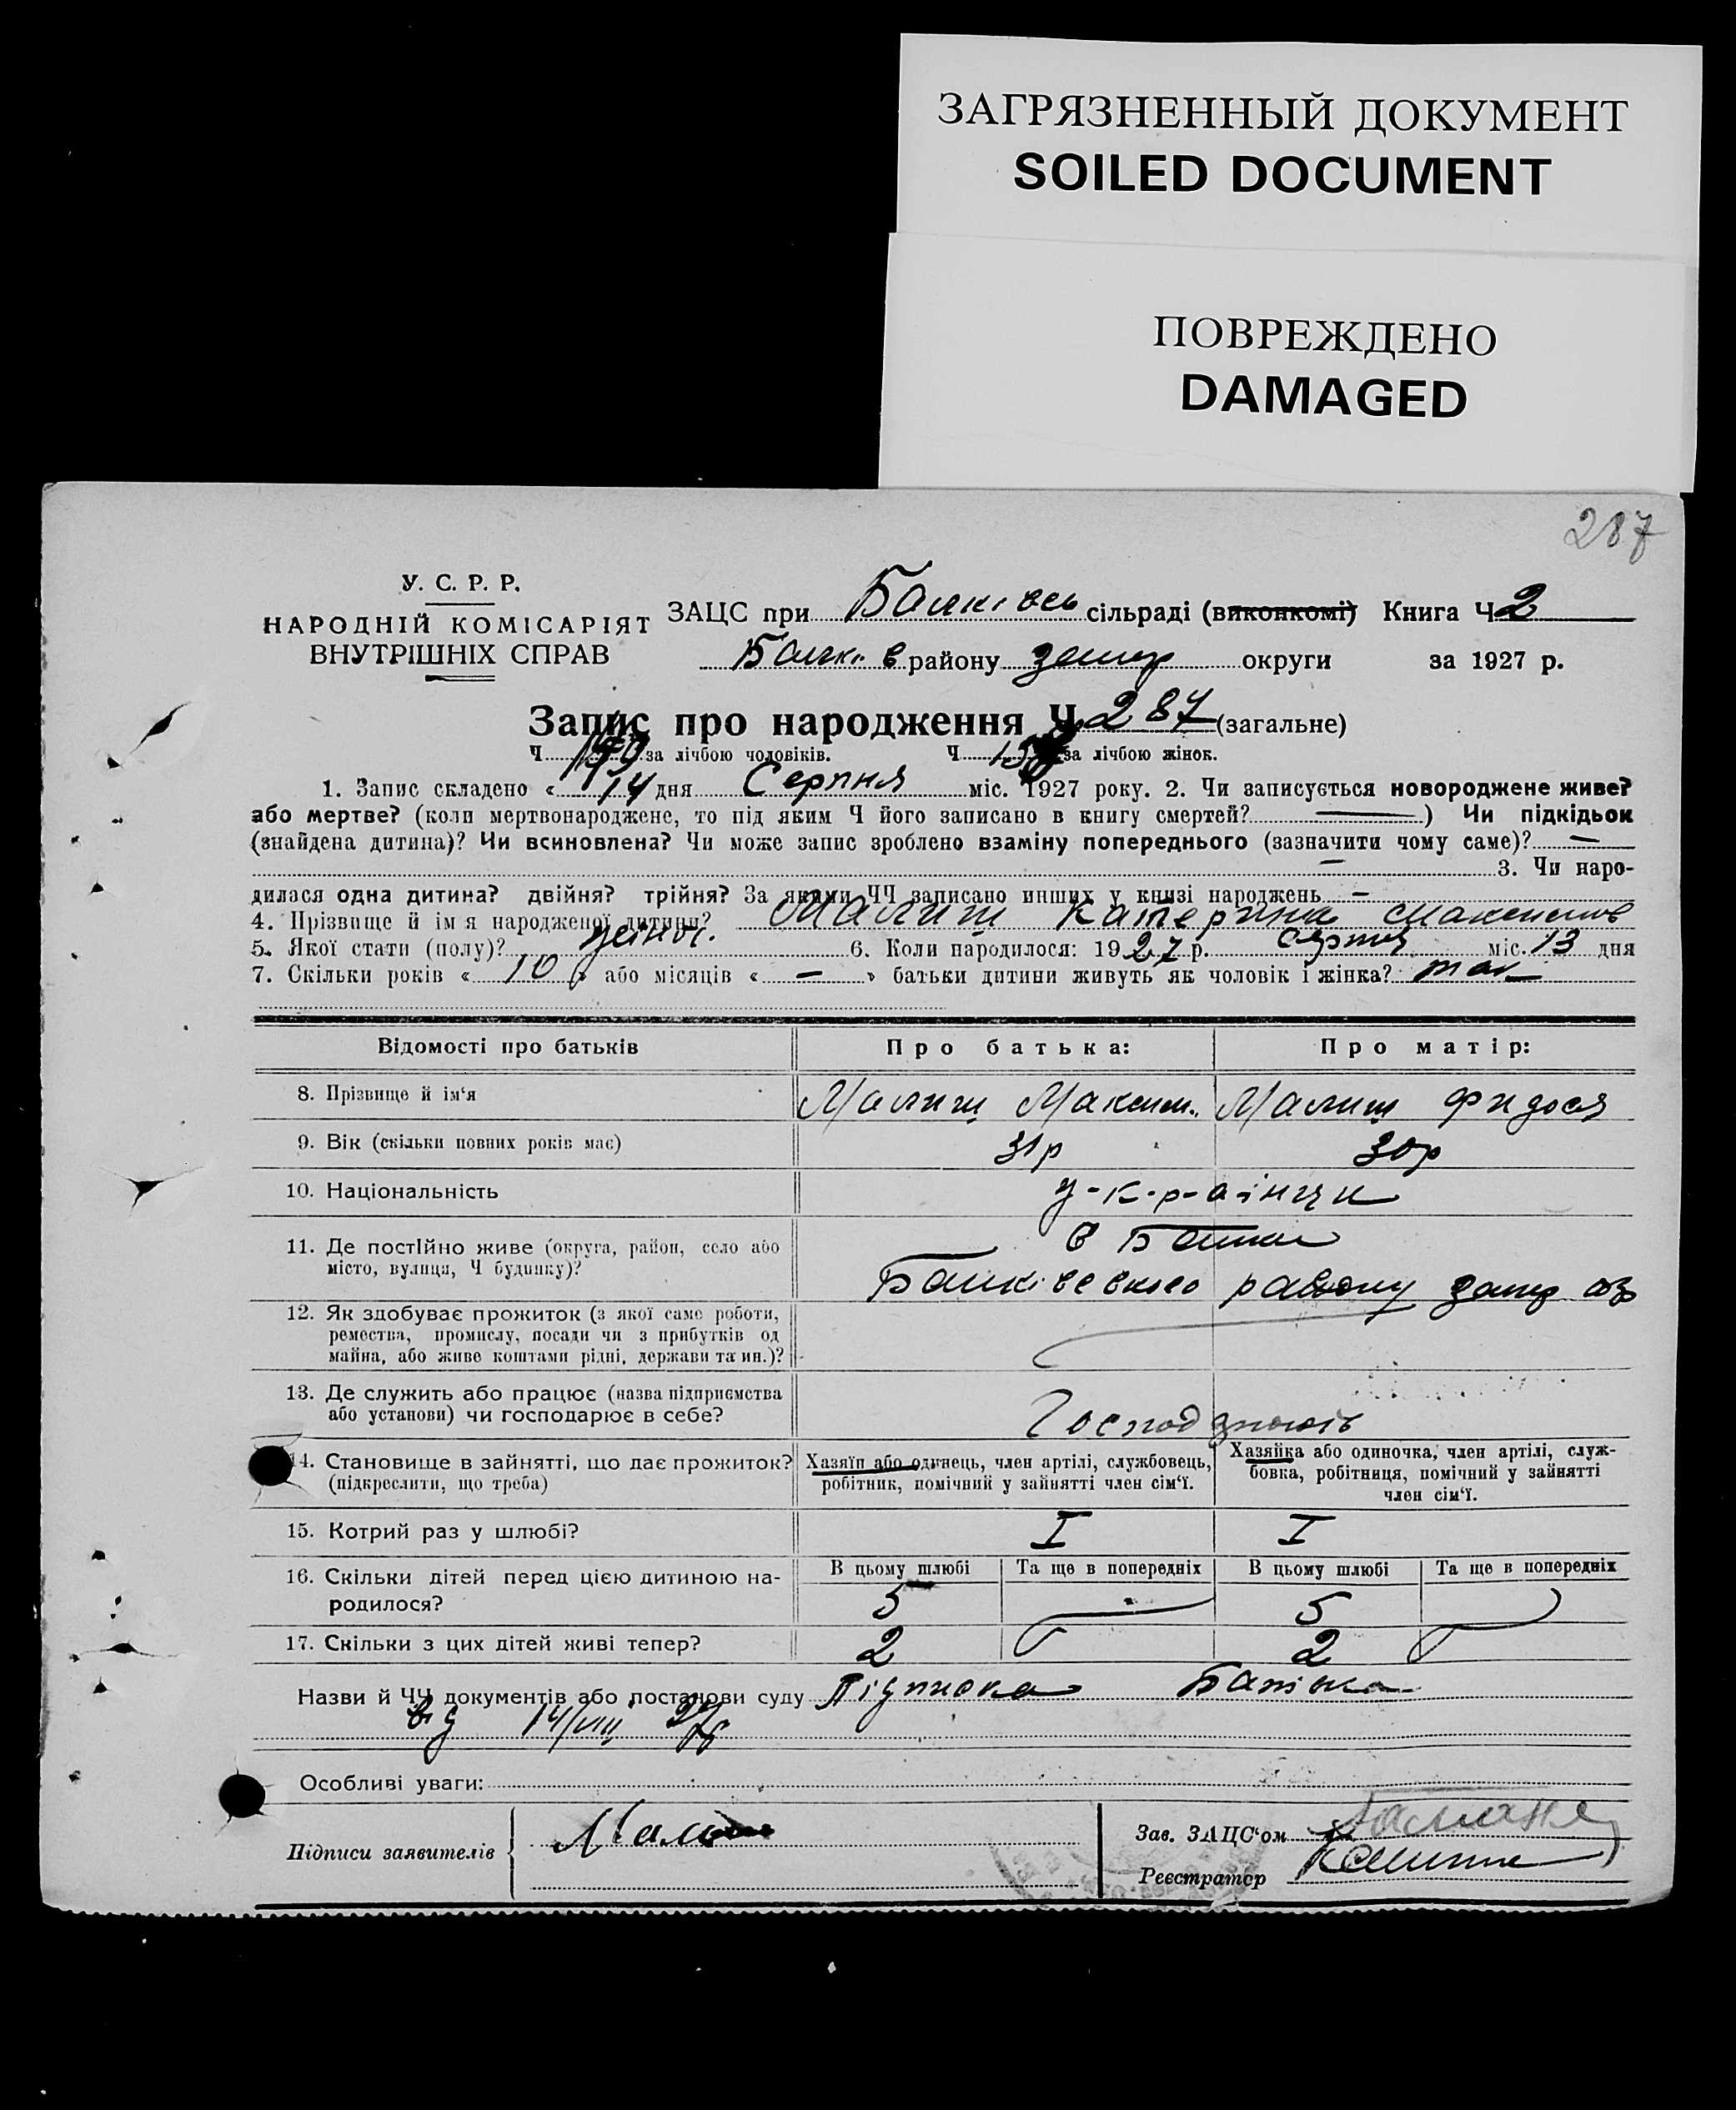 ЗАГРЯЗНЕННЫЙ ДОКУМЕНТ
SOILED DOCUMENT
ПОВРЕЖДЕНО
DAMAGED
287
У. С. Р. Р.
НАРОДНІЙ КОМІСАРІЯТ
ВНУТРІШНІХ СПРАВ
ЗАЦС при Балківсь сільраді (виконкомі) Книга Ч 2
Балків району запор округи за 1927 р.
Запис про народження Ч 287 (загальне)
Ч за лічбою чоловіків. Ч за лічбою жінок.
1. Запис складено « 14 дня Серпня міс. 1927 року. 2. Чи записується новороджене живе?
або мертве? (коли мертвонароджене, то під яким Ч його записано в книгу смертей? —) Чи підкідьок
(знайдена дитина)? Чи всиновлена? Чи може запис зроблено взаміну попереднього (зазначити чому саме)? —
— 3. Чи наро-
дилася одна дитина? двійня? трійня? За якими ЧЧ записано инших у книзі народжень —
4. Прізвище й імя народженої дитини? Малиш Катерина Максимов
5. Якої стати (полу)? жіноч. 6. Коли народилося: 1927 р. серпня міс. 13 дня
7. Скільки років « 10 » або місяців « — » батьки дитини живуть як чоловік і жінка? так
Відомості про батьків Про батька: Про матір:
8. Прізвище й ім‘я Малиш Максим. Малиш Фидося
9. Вік (скільки повних років має) 31р 30р
10. Національність у-к-р-аінци
11. Де постійно живе (округа, район, село або
місто, вулиця, Ч будинку)?
в Балках
Балківського району запор окр
12. Як здобуває прожиток (з якої саме роботи,
ремества, промислу, посади чи з прибутків од
майна, або живе коштами рідні, держави та ин.)?
13. Де служить або працює (назва підприємства
або установи) чи господарює в себе?
14. Становище в зайнятті, що дає прожиток?
(підкреслити, що треба)
Хазяїн або одинець, член артілі, службовець,
робітник, помічний у зайнятті член сім‘ї.
Хазяйка або одиночка, член артілі, служ-
бовка, робітниця, помічний у зайнятті
член сім‘ї.
15. Котрий раз у шлюбі? I I
16. Скільки дітей перед цією дитиною на-
родилося?
В цьому шлюбі Та ще в попередніх В цьому шлюбі Та ще в попередніх
5 5
17. Скільки з цих дітей живі тепер? 2 2
Назви й ЧЧ документів або постанови суду Підписка Батька
від 14/VIII 27р
Особливі уваги:
Підписи заявителів
Зав. ЗАЦС‘ом
Реєстратор